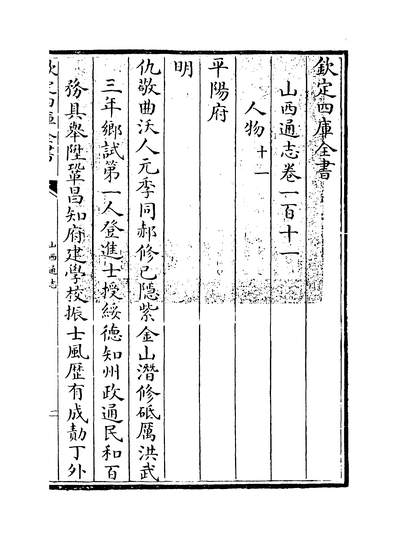 欽定四庫全書
山西通志卷一百十一
人物十一
平陽府
明
仇敬曲沃人元季同郝修已隱紫金山潛修砥厲洪武
三年鄉試第一人登進士授綏德知州政通民和百
務具舉陞鞏昌知府建學校振士風歷有成勣丁外
欽定四庫全書
山西通志